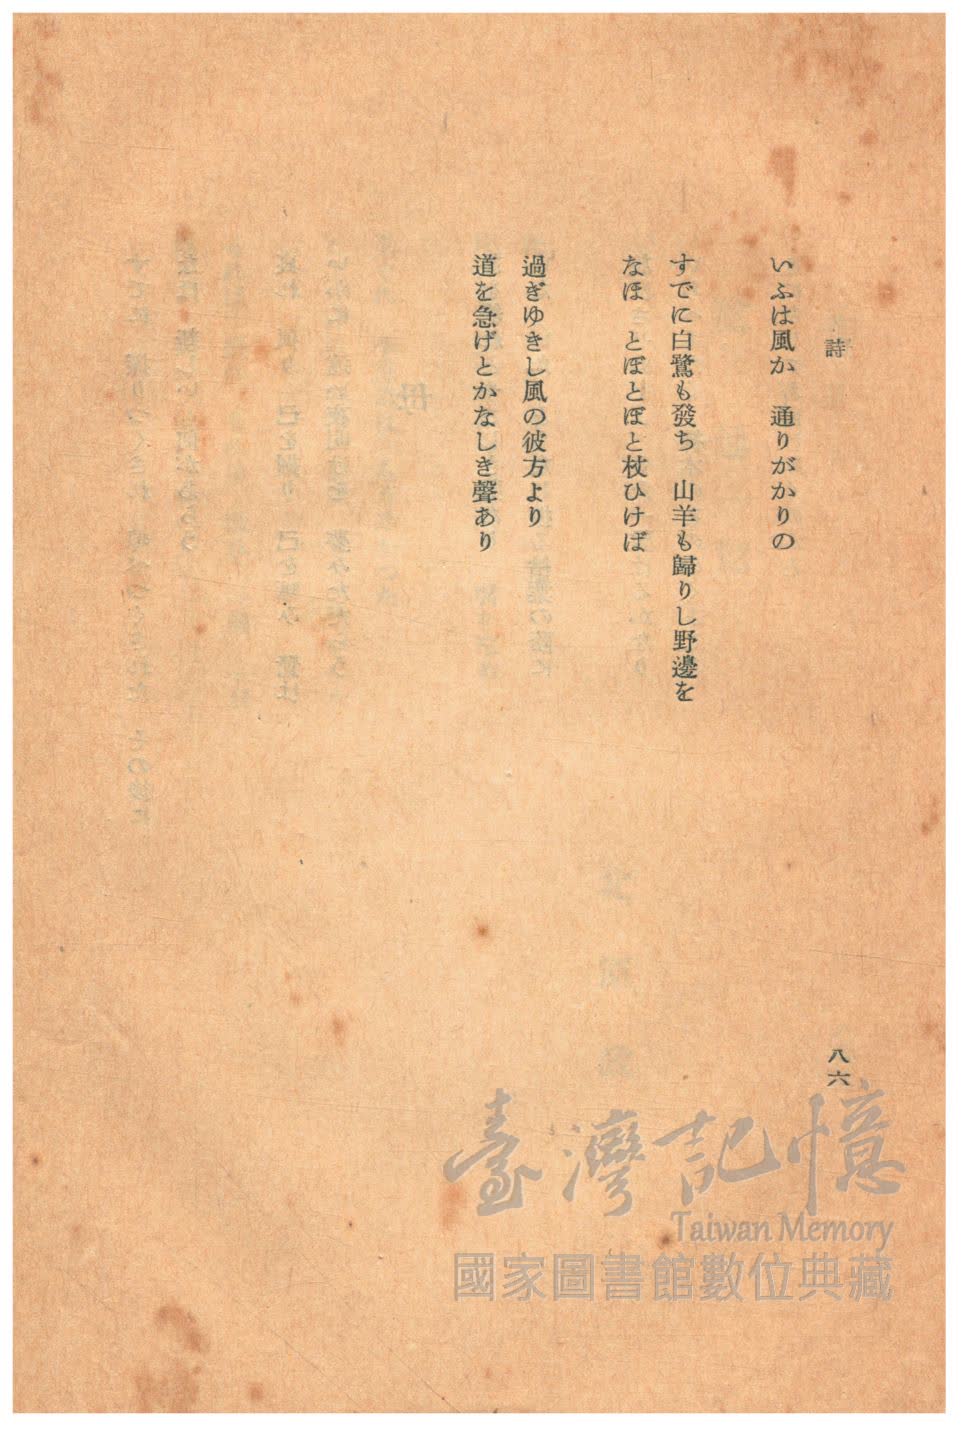 詩
いふは風か　通りがかりの
すでに白鷺も發ち　山羊も歸りし野邊を
なほ　とぼとぼと杖ひけば
過ぎゆきし風の彼方より
道を急げとかなしき聲あり
八六
臺灣記憶
Taiwan Memory
國家圖書館數位典藏